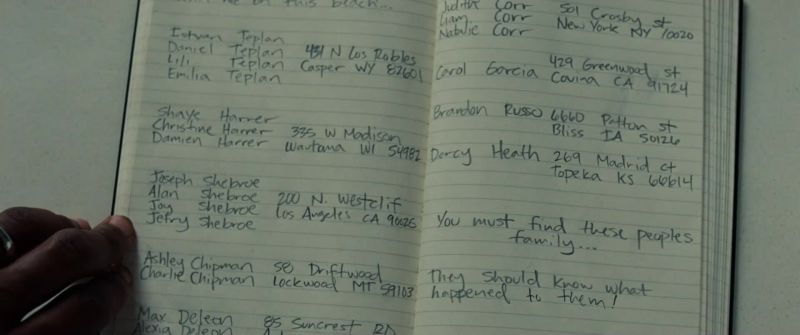 on this beach...
Istvan Teplan
Daniel Teplan 431 N Los Robles
Lili Teplan Casper WY 82601
Emilia Teplan
Shaye Harrer
Christine Harrer 335 W Madison
Damien Harrer Wautoma WI 54982
Joseph Shebroe
Alan Shebroe 200 N. Westclif
Joy Shebroe Los Angeles CA 90025
Jefry Shebroe
Ashley Chipman 58 Driftwood
Charlie Chipman Lockwood MT 59103
Max Deleon 85 Suncrest RD
Alexia Deleon
Judith Corr 501 Crosby st
Liam Corr New York NY 10020
Natalie Corr
Carol Garcia 429 Greenwood st
Covina CA 91724
Brandon Russo 6660 Patton st
Bliss IA 50126
Darcy Heath 269 Madrid ct
Topeka KS 66614
You must find these peoples
family...
They should know what
happened to them!